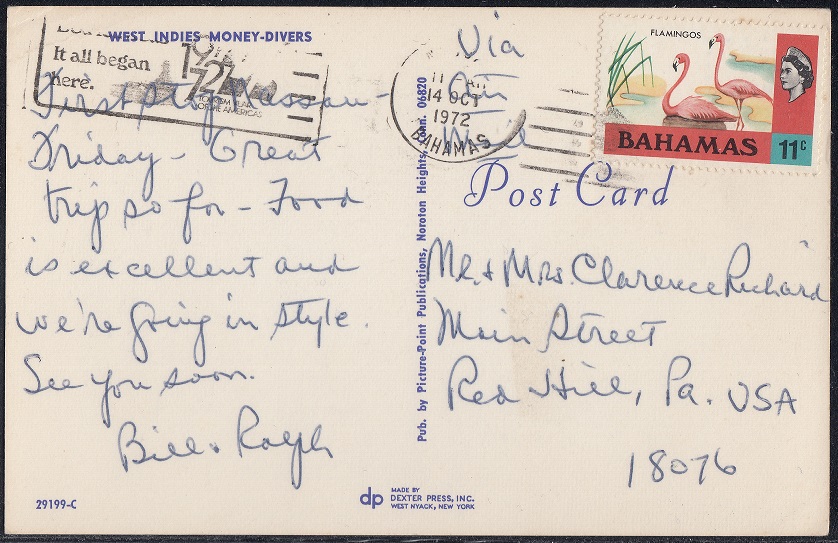 WEST INDIES MONEY-DIVERS
It all began
here.
1972
TOURISM YEAR
OF THE AMERICAS
First stop Nassau -
Friday - Great
trip so far - Food
is excellent and
we're going in style.
See you soon.
Bill & Ralph
29199-C
Pub. by Picture-Point Publications, Noroton Heights, Conn. 06820
dp
MADE BY
DEXTER PRESS, INC.
WEST NYACK, NEW YORK
Via
Air
Mail
11 AM
14 OCT
1972
BAHAMAS
FLAMINGOS
BAHAMAS 11c
Post Card
Mr. & Mrs. Clarence Richard
Main Street
Red Hill, Pa. USA
18076